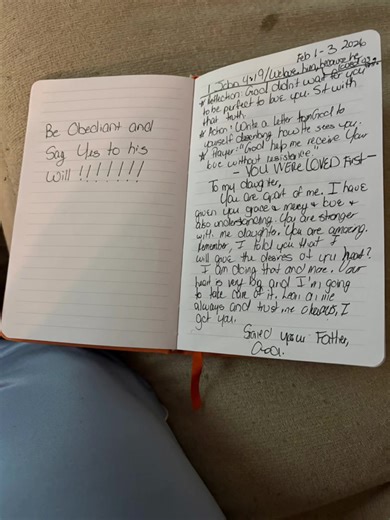 Be Obediant and
Say Yes to his
Will !!!!!!!
Feb 1-3 2026
1 John 4:19/We love him because he
loved us
* Reflection: God didn't wait for you
to be perfect to love you. Sit with
that truth.
* Action: Write a letter from God to
yourself describing how He sees you.
* Prayer: "God help me receive Your
love without resistance"
- YOU WERE LOVED FIRST -
To my daughter,
You are apart of me. I have
given you grace & mercy & love &
also understanding. You are stronger
with me daughter. You are amazing.
Remember, I told you that I
will give the desires of you heart?
I am doing that and more. Your
heart is very big and I'm going
to take care of it. Lean on me
always and trust me always, I
got you.
your Father,
God.